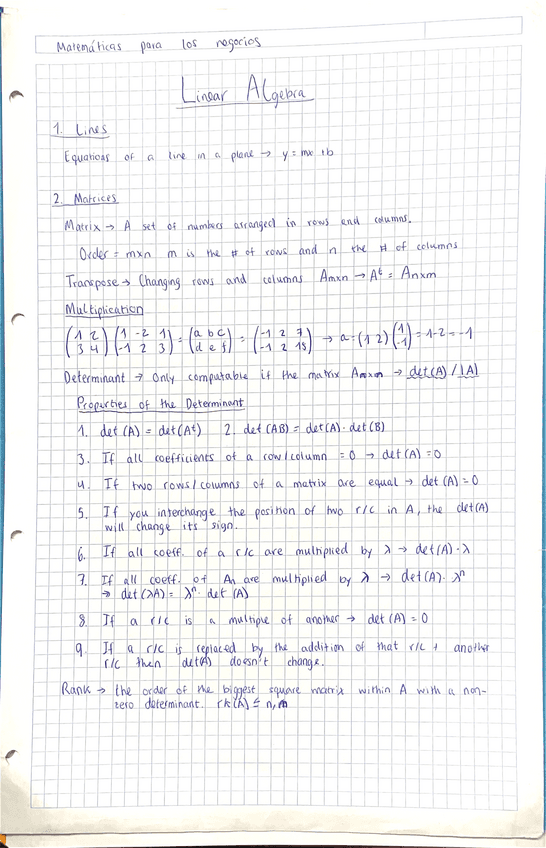 Matemáticas para los negocios
Linear Algebra
1. Lines
Equations of a line in a plane → y = mx + b
2. Matrices
Matrix → A set of numbers arranged in rows and columns.
Order = mxn m is the # of rows and n the # of columns
Transpose → Changing rows and columns Amxn → Aᵗ = Anxm
Multiplication
(1 2 / 3 4) (1 -2 1 / -1 2 3) = (a b c / d e f) = (-1 2 7 / -1 2 15) → a = (1 2) (1 / -1) = 1-2 = -1
Determinant → Only computable if the matrix Amxm → det(A) / |A|
Properties of the Determinant
1. det (A) = det(Aᵗ) 2. det (AB) = det(A) · det(B)
3. If all coefficients of a row/column = 0 → det(A) = 0
4. If two rows/columns of a matrix are equal → det (A) = 0
5. If you interchange the position of two r/c in A, the det(A)
will change its sign.
6. If all coeff. of a r/c are multiplied by λ → det(A) · λ
7. If all coeff. of An are multiplied by λ → det(A) · λⁿ
→ det (λA) = λⁿ · det (A)
8. If a r/c is a multiple of another → det (A) = 0
9. If a r/c is replaced by the addition of that r/c + another
r/c then det(A) doesn't change.
Rank → the order of the biggest square matrix within A with a non-
zero determinant. rk(A) ≤ n, m